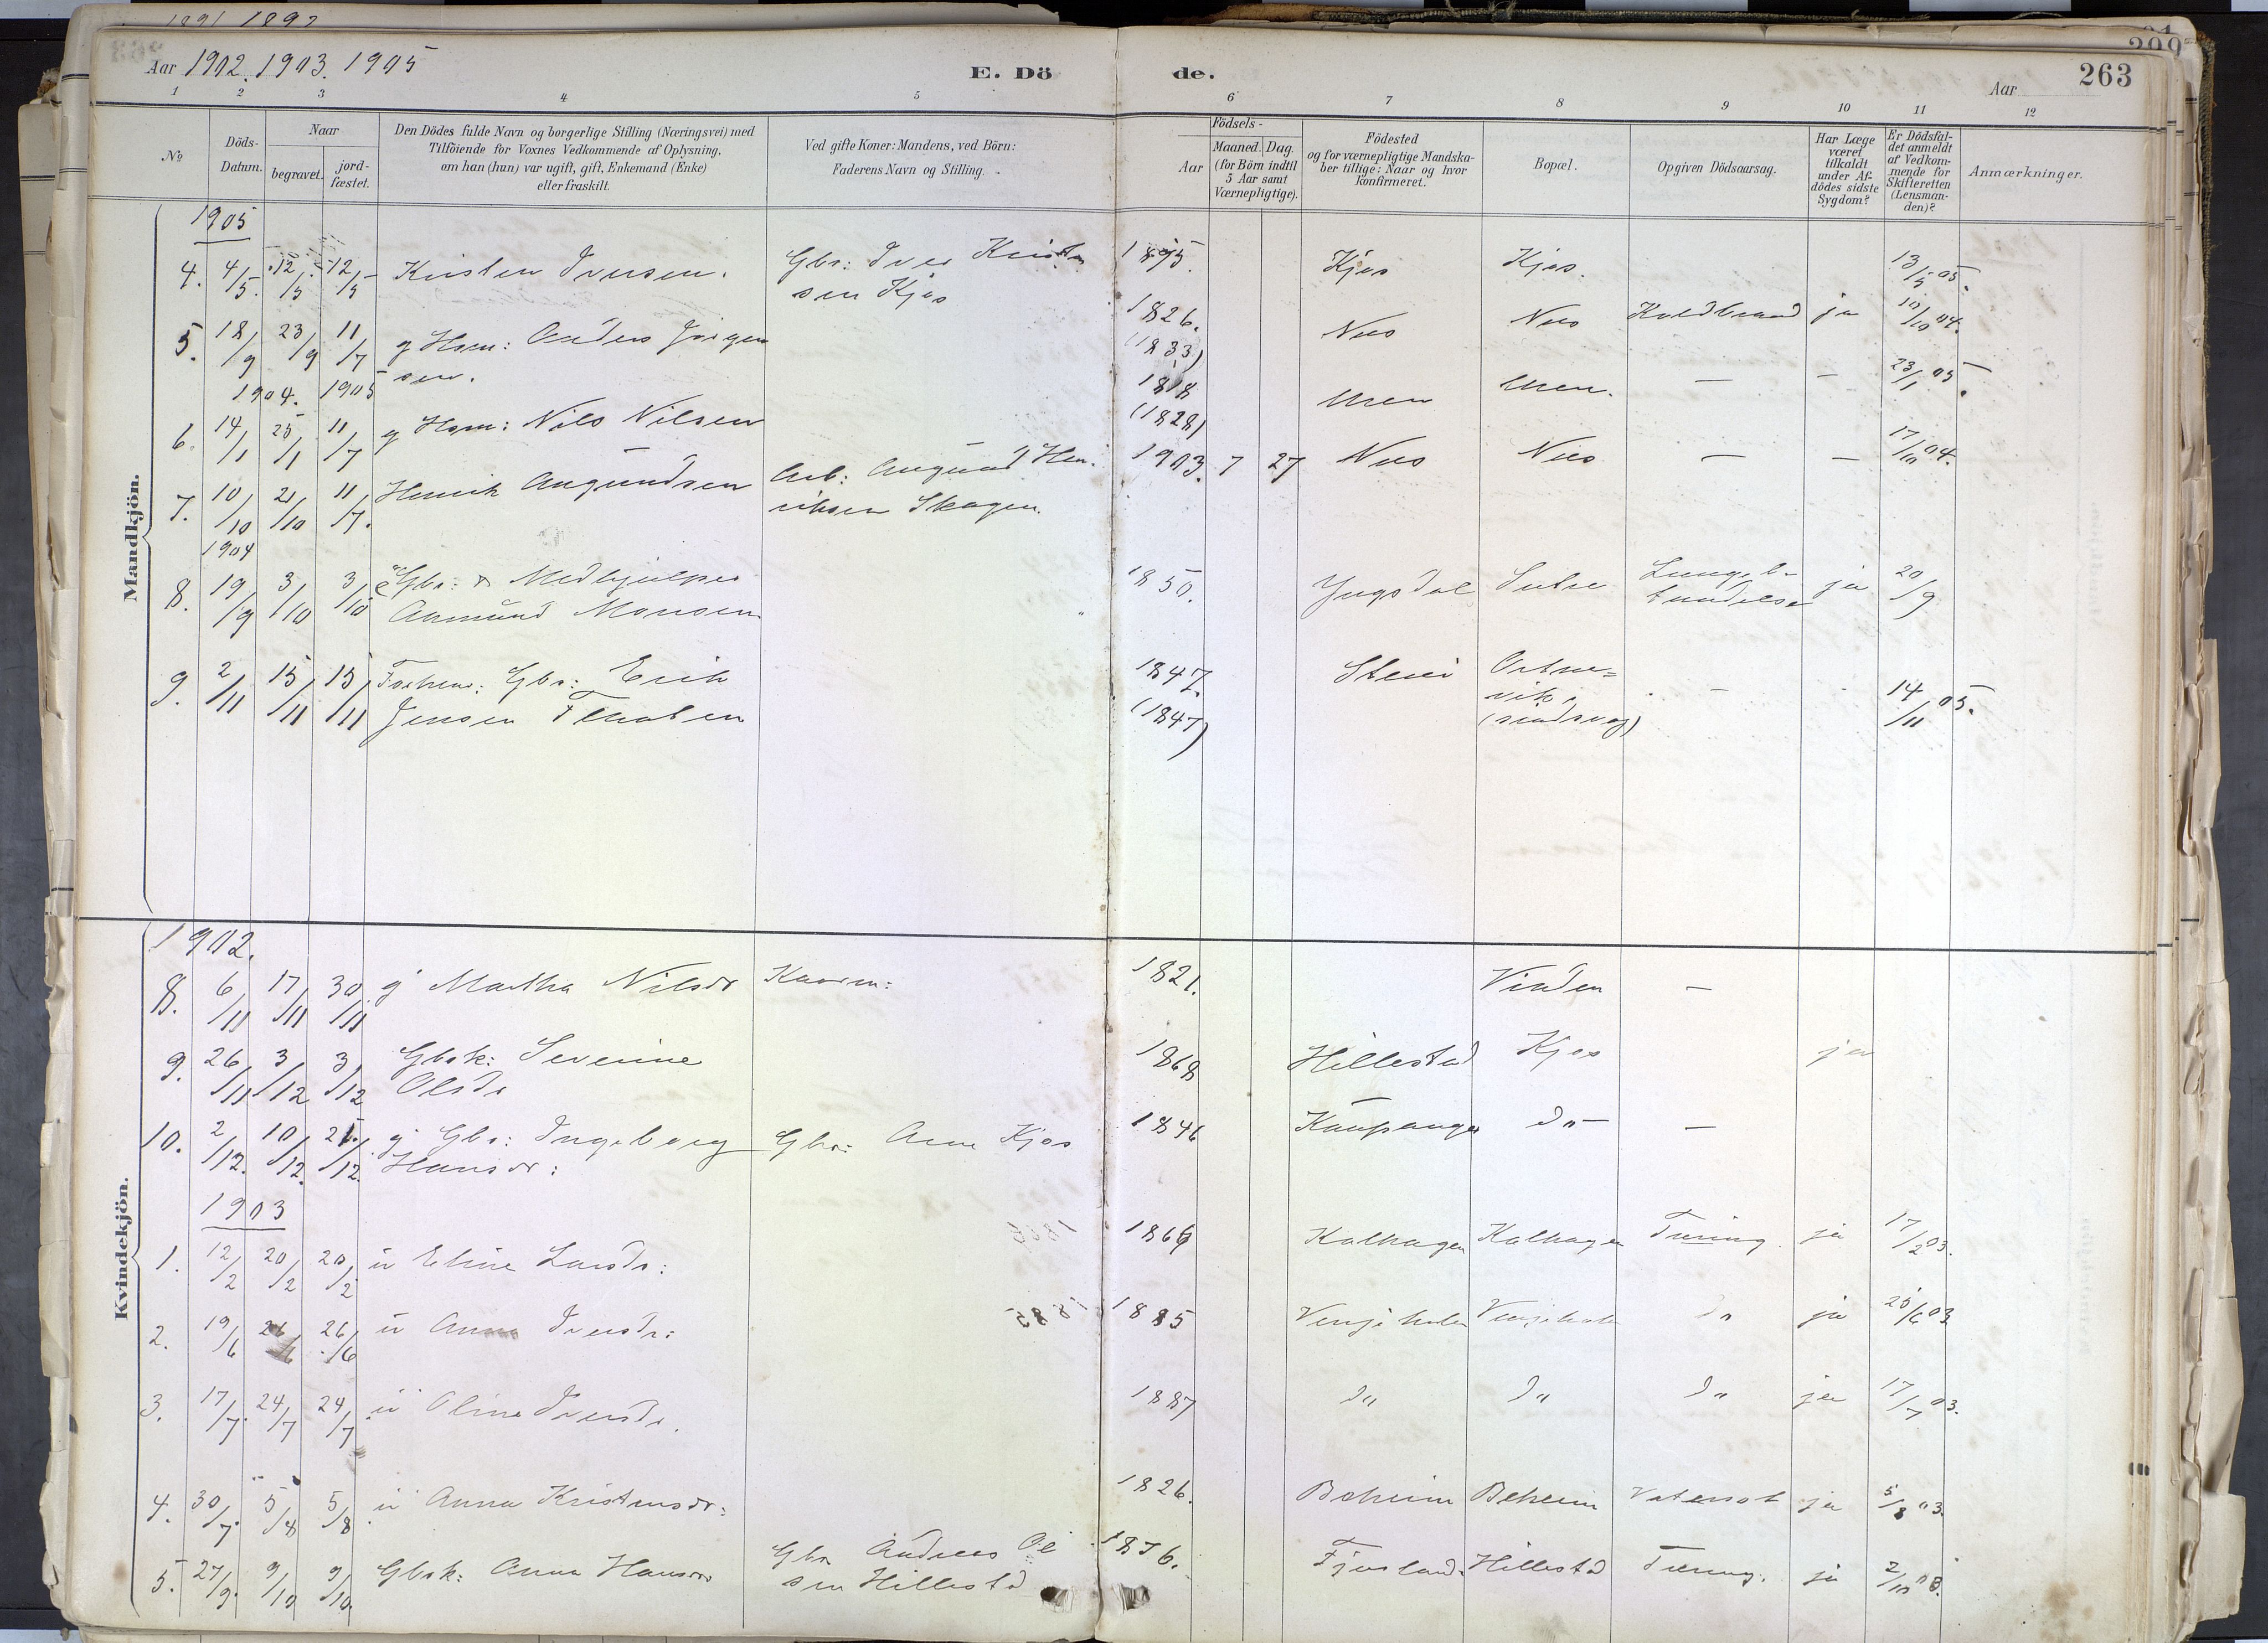 1891 1892
Aar 1902. 1903. 1905
E. Dö
de.
Aar
263
1 2 3 4 5 6 7 8 9 10 11 12
No
Döds-Datum.
Naar
begravet.
jord-fæstet.
Den Dödes fulde Navn og borgerlige Stilling (Næringsvei) med
Tilföiende for Voxnes Vedkommende af Oplysning,
om han (hun) var ugift, gift, Enkemand (Enke)
eller fraskilt.
Ved gifte Koner: Mandens, ved Börn:
Faderens Navn og Stilling.
Födsels-
Aar
Maaned. Dag.
(for Börn indtil
5 Aar samt
Værnepligtige).
Födested
og for værnepligtige Mandska-
ber tillige: Naar og hvor
konfirmeret.
Bopæl.
Opgiven Dödsaarsag.
Har Læge
været
tilkaldt
under Af-
dödes sidste
Sygdom?
Er Dödsfal-
det anmeldt
af Vedkom-
mende for
Skifteretten
(Lensman-
den)?
Anmærkninger.
Mandkjön.
1905
4. 4/5. 12/5 12/5 Kristen Iversen. Gbr: Iver Kristen 1895. Kjøs Kjøs. 13/5 05.
sen Kjøs
5. 18/9 23/9 11/7 g Hsm: Anders Jørgen 1826. Nes Nes Koldbrand ja 10/10 04.
sen. (1833)
1904. 1905
6. 14/1 25/1 11/7 g Hsm: Nils Nilsen 1818 Uren Uren. — — 23/1 05.
(1828)
7. 10/10 21/10 11/7. Henrik Amundsen Arb: Amund Hen- 1903. 7 27 Nes Nes — — 17/10 04.
riksen Skagen.
1904
8. 19/9 3/10 3/10 Gbr: & Medhjælper 1850. Yngsdal Sætre Lungebe- ja 20/9
Anmund Monsen tændelse
9. 2/11 15/11 15/11 Forhenv: Gbr: Erik 1847. Steni Ortne- — 14/11 05.
Jensen (1847) vik,
Kvindekjön.
1902.
8. 6/11 17/11 30/11 g Martha Nilsdr Kaarm: 1821. Vinden —
9. 26/11 3/12 3/12 Gbsk: Severine 1868 Hillestad Kjøs ja
Olsdr
10. 2/12. 10/12. 21/12. g Gbr: Ingeborg Gbr: Arne Kjøs 1846 Kaupanger do —
Hansdr:
1903
1. 12/2 20/2 20/2 u Eline Larsdr: 1866 Kalhagen Kalhagen Tæring. ja 17/2 03.
2. 19/6 26/6 26/6 u Anna Iversdr: 1885 Vengeholen Vengeholen do ja 25/6 03
3. 17/7. 24/7 24/7 u Oline Iversdr. 1887 do do do ja 17/7 03.
4. 30/7. 5/8 5/8 u Anna Kristensdr: 1826. Boheim Boheim Vatersot ja 5/8 03.
5. 27/9. 9/10 9/10. Gbsk: Anna Hansdr Gbr Andreas Ol 1876. Fjærland. Hillestad Tæring. ja 2/10 03.
sen Hillestad